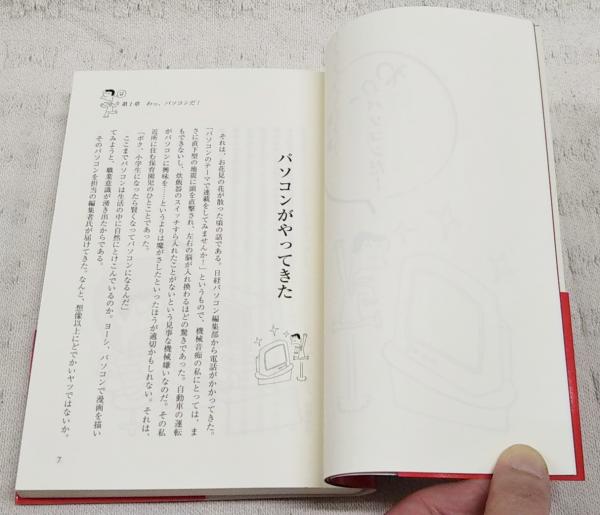 第1章 わっ、パソコンだ!
パソコンがやってきた
それは、お花見の花が散った頃の話である。日経パソコン編集部から電話がかかってきた。
「パソコンのテーマで連載をしてみませんか!」というもので、機械音痴の私にとっては、ま
さに直下型の地震に頭を直撃され、左右の脳が入れ換わるほどの驚きであった。自動車の運転
もできないし、炊飯器のスイッチすら入れたことがないという見事な機械嫌いなのだ。その私
がパソコンに興味を……というよりは魔がさしたといったほうが適切かもしれない。それは、
近所に住む保育園児のひとことであった。
「ボク、小学生になったら賢くなってパソコンになるんだ」
ここまでパソコンは生活の中に自然にとけこんでいるのか。ヨーシ、パソコンで漫画を描い
てみようと、職業意識が湧き出たからである。
そのパソコンを担当の編集者氏が届けてきた。なんと、想像以上にどでかいヤツではないか。
7